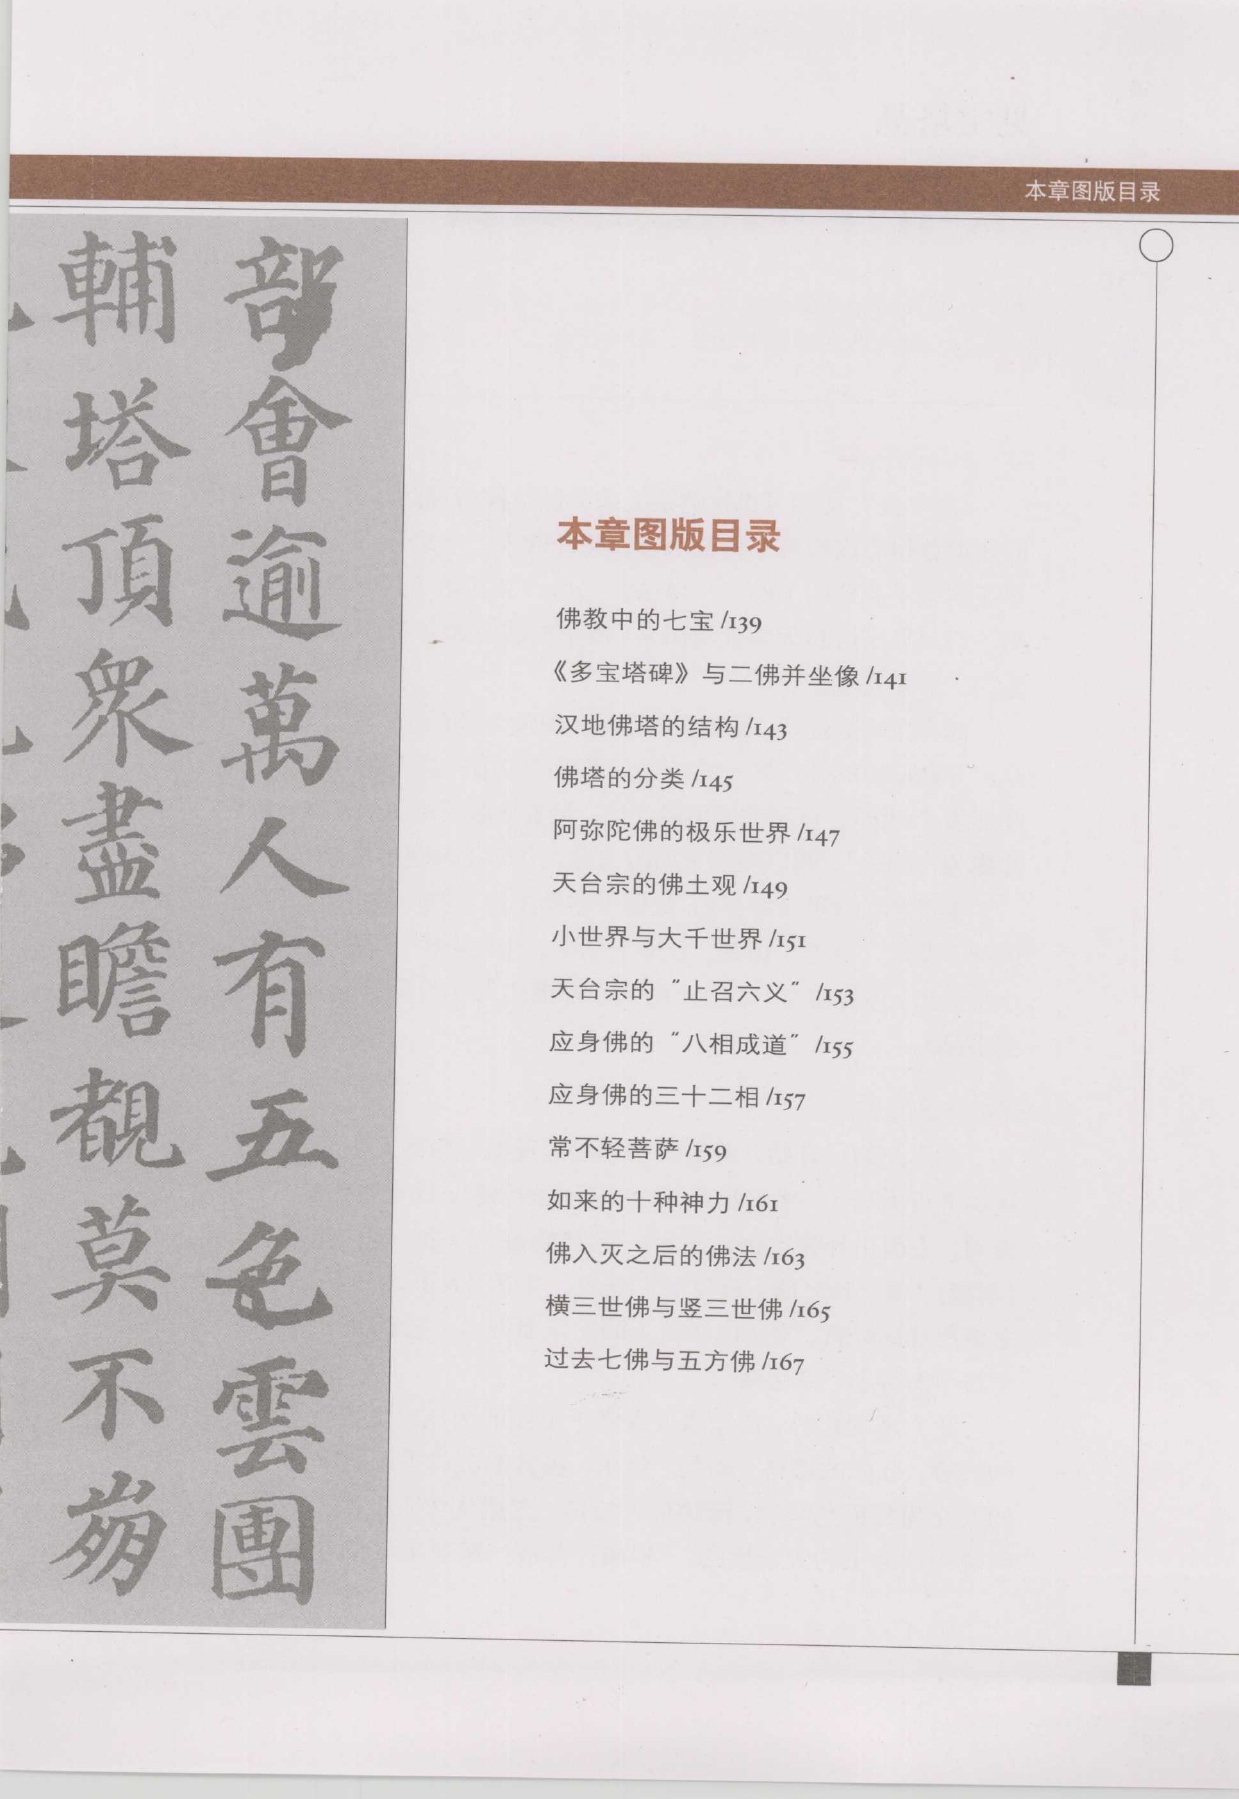 本章图版目录
部會逾萬人有五色雲團
輔塔頂衆盡瞻覩莫不
本章图版目录
佛教中的七宝 /139
《多宝塔碑》与二佛并坐像 /141
汉地佛塔的结构 /143
佛塔的分类 /145
阿弥陀佛的极乐世界 /147
天台宗的佛土观 /149
小世界与大千世界 /151
天台宗的“止召六义” /153
应身佛的“八相成道” /155
应身佛的三十二相 /157
常不轻菩萨 /159
如来的十种神力 /161
佛入灭之后的佛法 /163
横三世佛与竖三世佛 /165
过去七佛与五方佛 /167